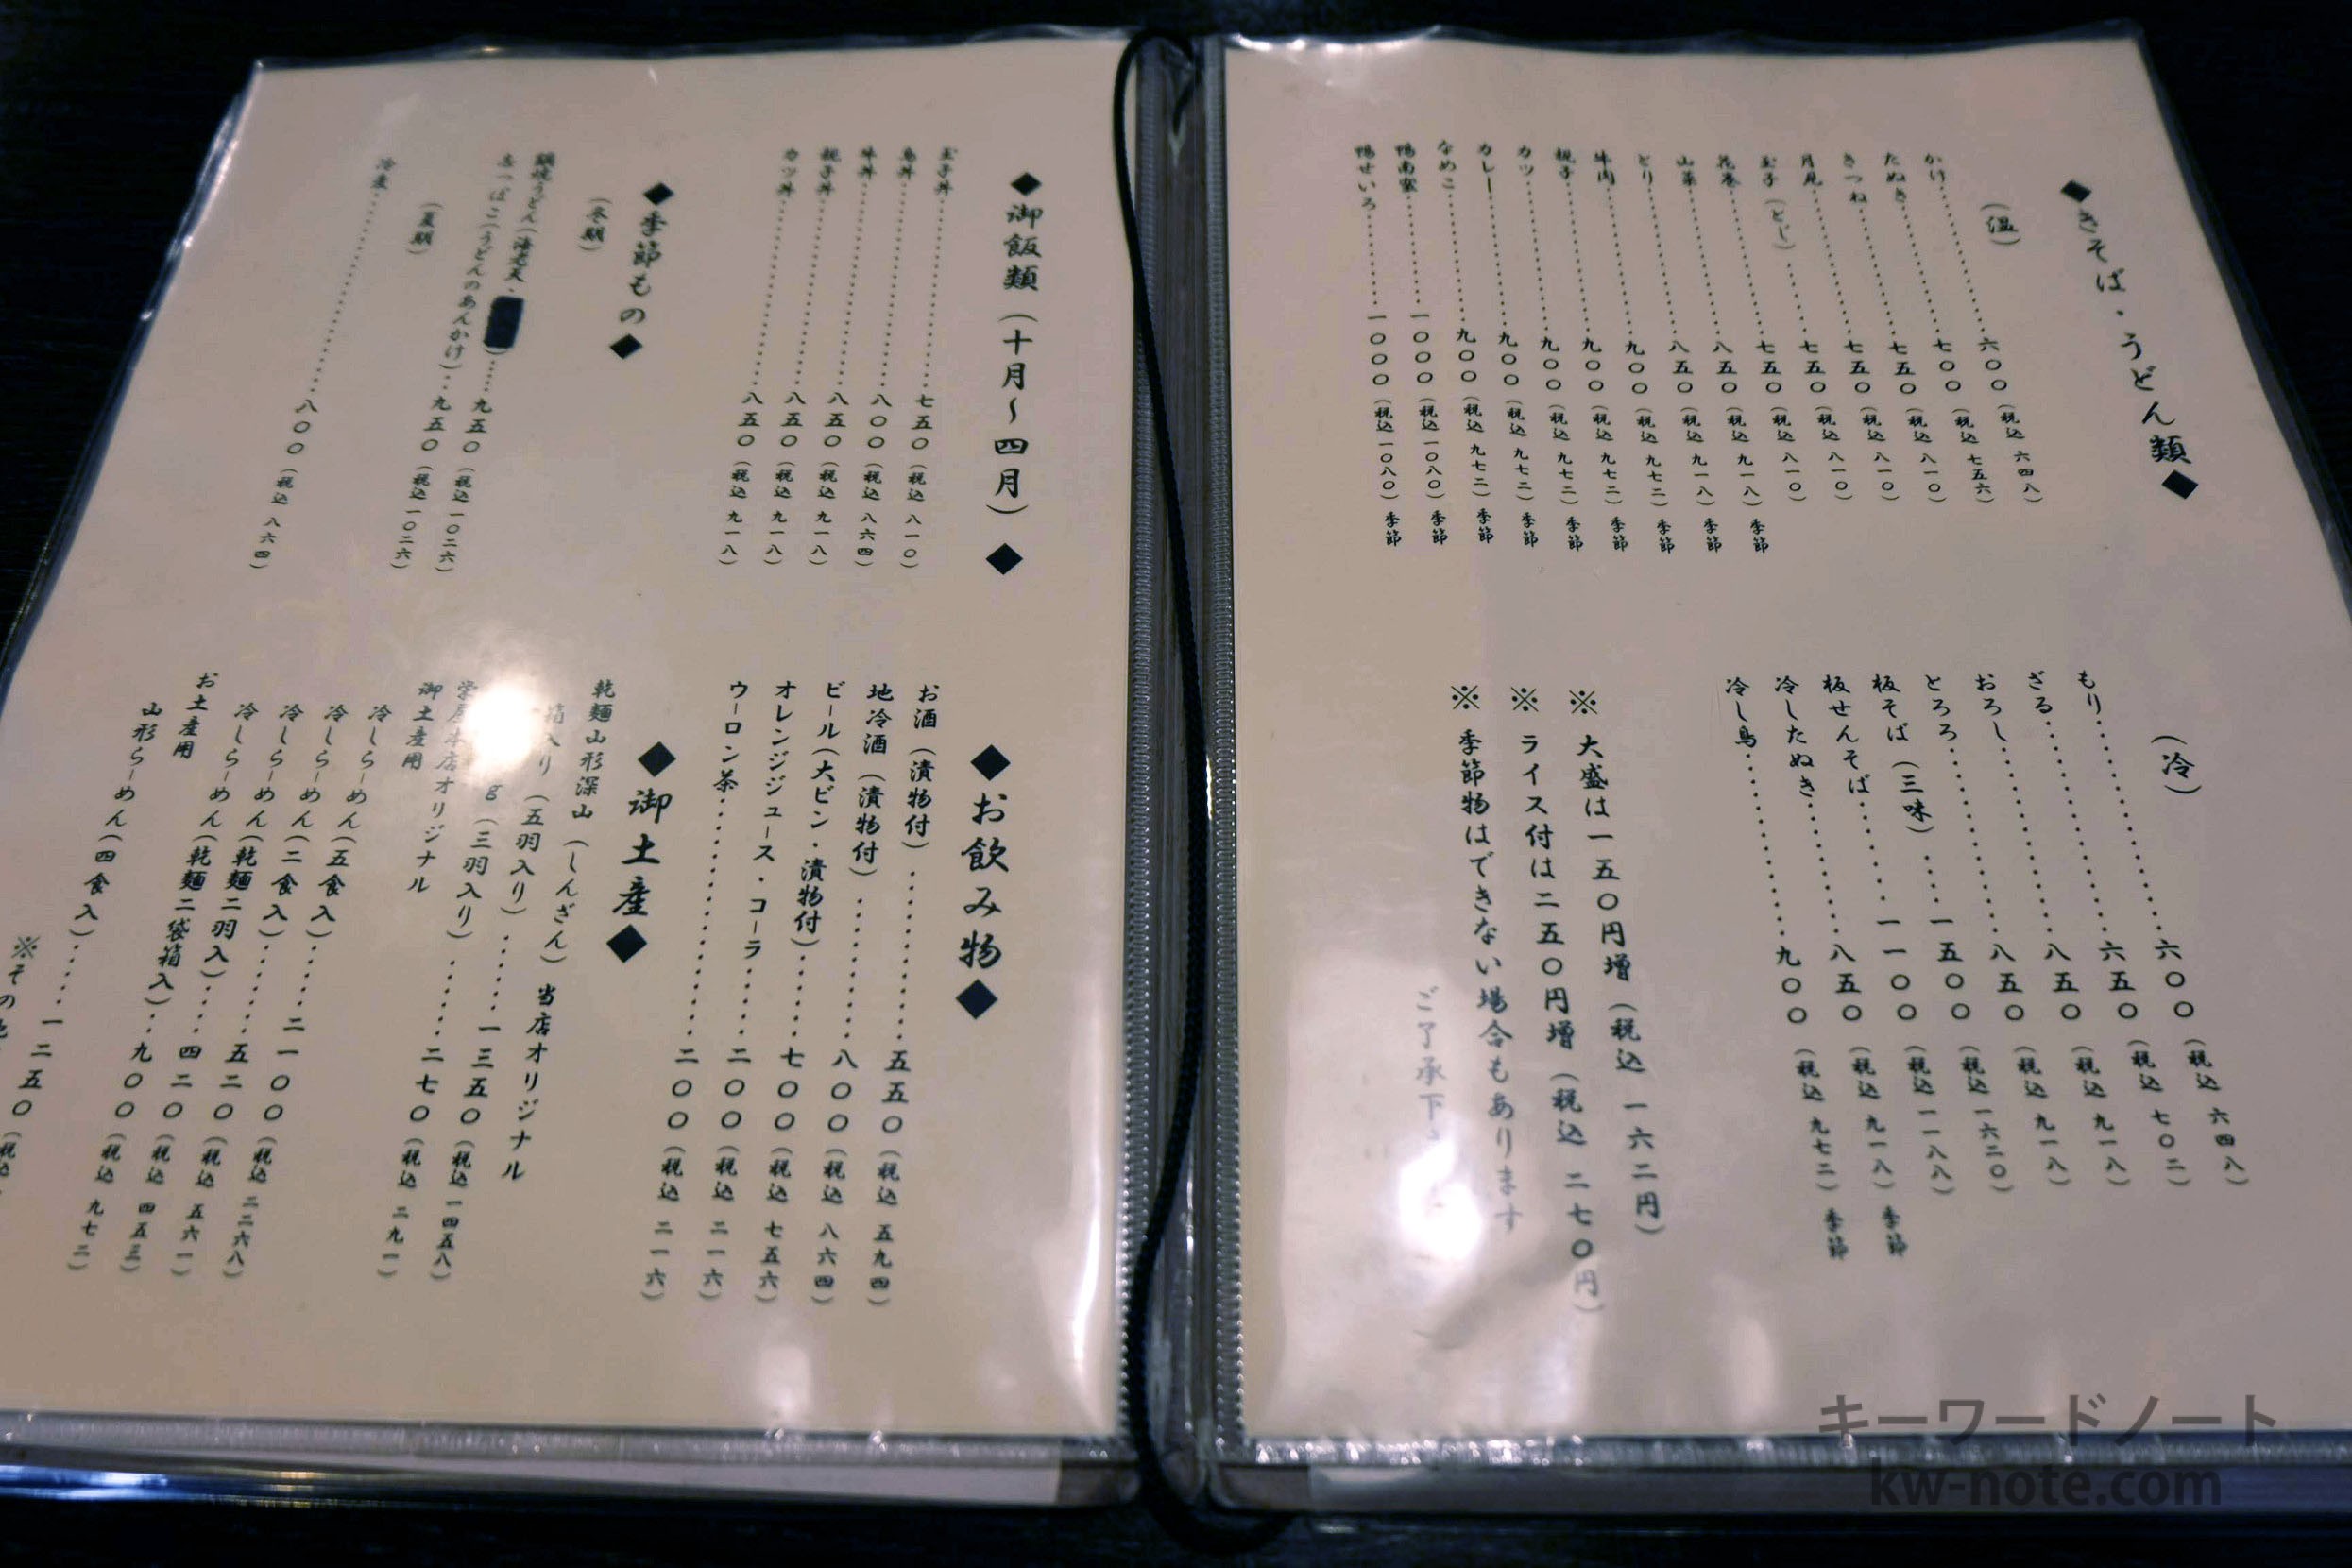 ◆きそば・うどん類◆
（温）
かけ………六〇〇（税込 六四八）
たぬき………七〇〇（税込 七五六）
きつね………七五〇（税込 八一〇）
月見………七五〇（税込 八一〇）
玉子（とじ）………七五〇（税込 八一〇）
花巻………八五〇（税込 九一八）季節
山菜………八五〇（税込 九一八）季節
とり………九〇〇（税込 九七二）季節
牛肉………九〇〇（税込 九七二）季節
親子………九〇〇（税込 九七二）季節
カツ………九〇〇（税込 九七二）季節
カレー………九〇〇（税込 九七二）季節
なめこ………九〇〇（税込 九七二）季節
鴨南蛮………一〇〇〇（税込 一〇八〇）季節
鴨せいろ………一〇〇〇（税込 一〇八〇）季節
（冷）
もり………六〇〇（税込 六四八）
ざる………六五〇（税込 七〇二）
おろし………八五〇（税込 九一八）
とろろ………八五〇（税込 九一八）
板そば（三味）………一五〇〇（税込 一六二〇）
板せんそば………一一〇〇（税込 一一八八）
冷したぬき………八五〇（税込 九一八）季節
冷し鳥………九〇〇（税込 九七二）季節
※ 大盛は一五〇円増（税込 一六二円）
※ ライス付は二五〇円増（税込 二七〇円）
※ 季節物はできない場合もあります
ご了承下
◆御飯類（十月〜四月）◆
玉子丼………七五〇（税込 八一〇）
鳥丼………八〇〇（税込 八六四）
牛丼………八五〇（税込 九一八）
親子丼………八五〇（税込 九一八）
カツ丼………八五〇（税込 九一八）
◆季節もの◆
（冬期）
鍋焼うどん（海老天・）………九五〇（税込 一〇二六）
あっぱこ（うどんのあんかけ）………九五〇（税込 一〇二六）
（夏期）
冷麦………八〇〇（税込 八六四）
◆お飲み物◆
お酒（漬物付）………五五〇（税込 五九四）
地冷酒（漬物付）………八〇〇（税込 八六四）
ビール（大ビン・漬物付）………七〇〇（税込 七五六）
オレンジジュース・コーラ………二〇〇（税込 二一六）
ウーロン茶………二〇〇（税込 二一六）
◆御土産◆
乾麺山形深山（しんざん）当店オリジナル
箱入り（五羽入り）………一三五〇（税込 一四五八）
g（三羽入り）………二七〇（税込 二九一）
栄屋本店オリジナル
御土産用
冷しらーめん（五食入）………二一〇〇（税込 二二六八）
冷しらーめん（二食入）………五二〇（税込 五六一）
冷しらーめん（乾麺二羽入）………四二〇（税込 四五三）
冷しらーめん（乾麺二袋箱入）………九〇〇（税込 九七二）
お土産用
山形らーめん（四食入）………一二五〇（税込
※その他
キーワードノート
kw-note.com